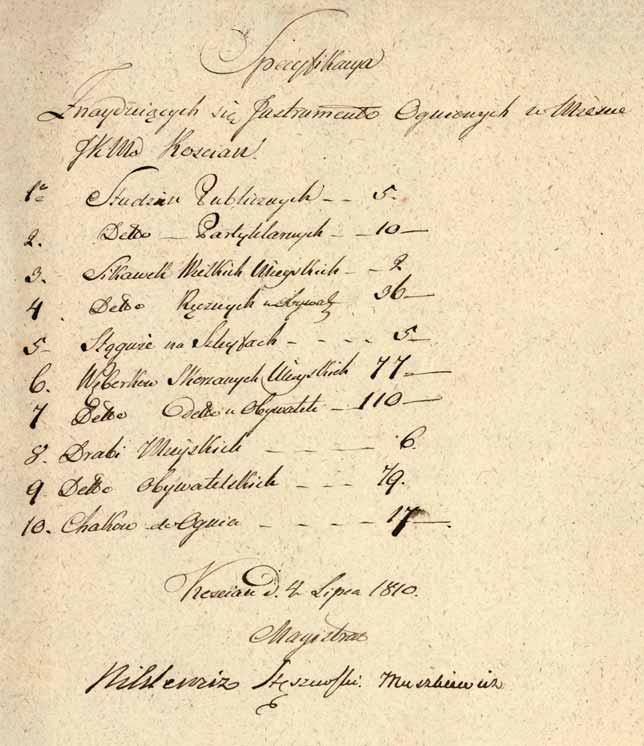 Specyfikacya
Znayduiących się Instrumento Ognionych w Mieście
JKMo Kościan.
1º Studzien Publicznych - - 5.
2. Detto - Partykularnych - - 10 -
3. Sikawek Wielkich Mieyskich - - 2
4. Detto Ręcznych u Obywat 36 -
5 - Stągwie na Szleyfach - - - - 5 -
6. Węberków Skorzanych Mieyskich 77 -
7 Detto Detto u Obywateli - 110 -
8. Drabi Mieyskich - - - - 6.
9. Detto Obywatelskich - - - 79.
10. Chaków do Ognia - - - - 17 -
Kościan d. 4 Lipca 1810.
Magistrat